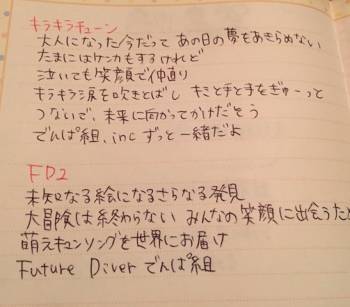 キラキラチューン
大人になった今だって あの日の夢をあきらめない
たまにはケンカもするけれど
泣いても笑顔で仲直り
キラキラ涙を吹きとばし キミと手と手をぎゅーっと
つないで、未来に向かってかけだそう
でんぱ組.inc ずっと一緒だよ
FD2
未知なる絵になるさらなる発見
大冒険は終わらない みんなの笑顔に出会うため
萌えキュンソングを世界にお届け
Future Diver でんぱ組